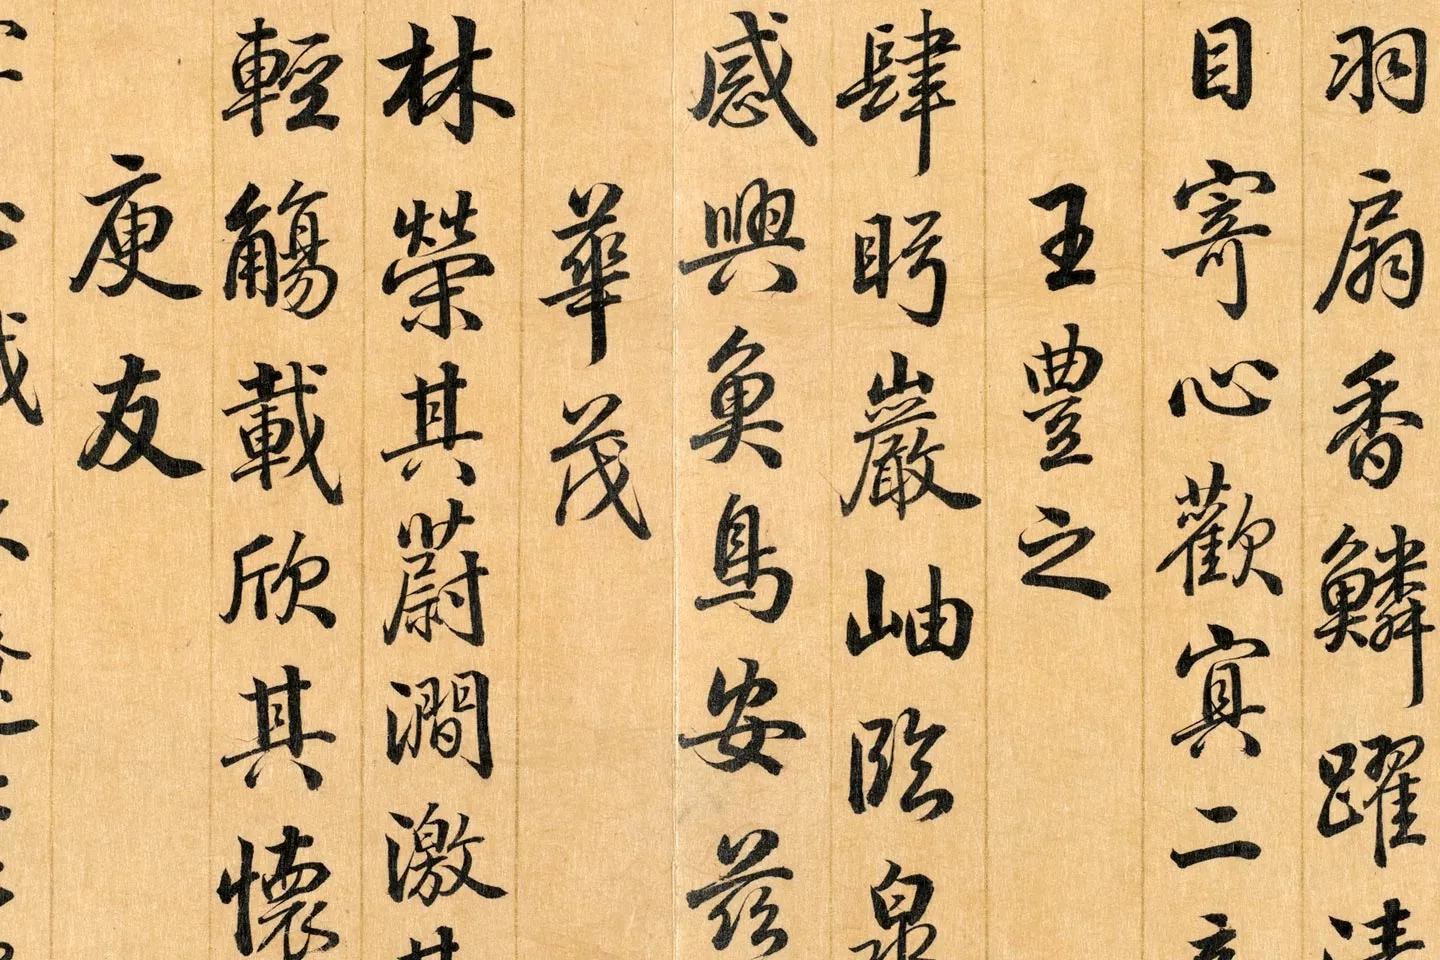 羽扇香鱗躍清
目寄心歡冥二
王豐之
肆眄巖岫臨泉
感興魚鳥安茲
華茂
林榮其蔚澗激其
輕觴載欣其懷
庾友